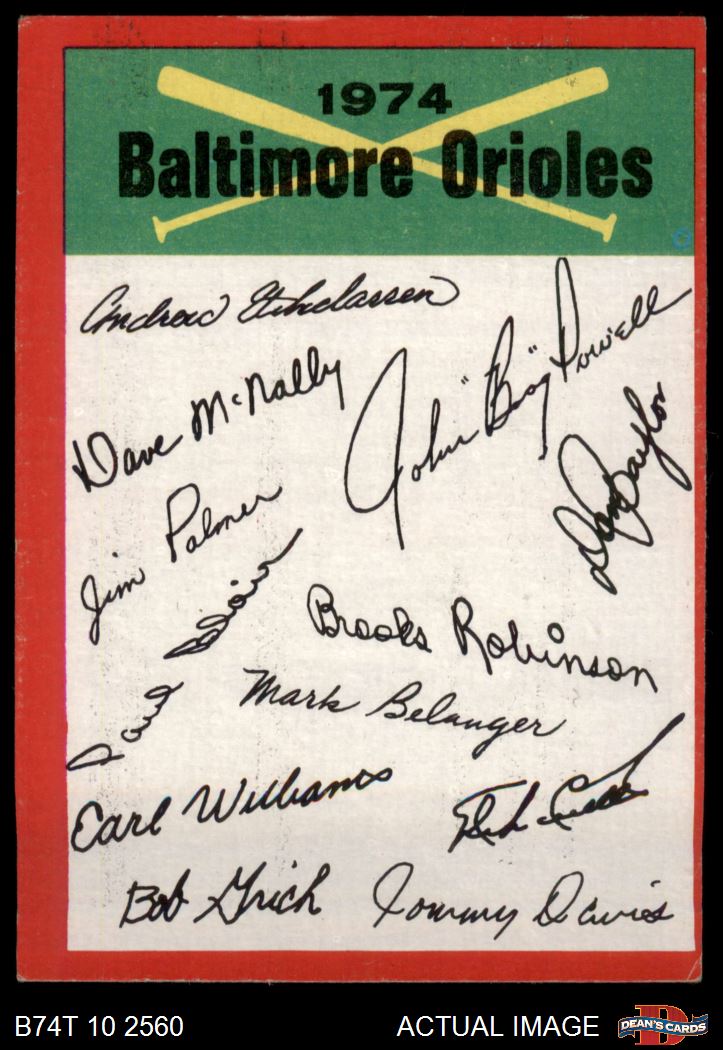 1974
Baltimore Orioles
Andrew Etchebarren
Dave McNally
John "Boog" Powell
Jim Palmer
Paul Blair
Brooks Robinson
Mark Belanger
Earl Williams
Bob Grich
Tommy Davis
B74T 10 2560
ACTUAL IMAGE
DEAN'S CARDS